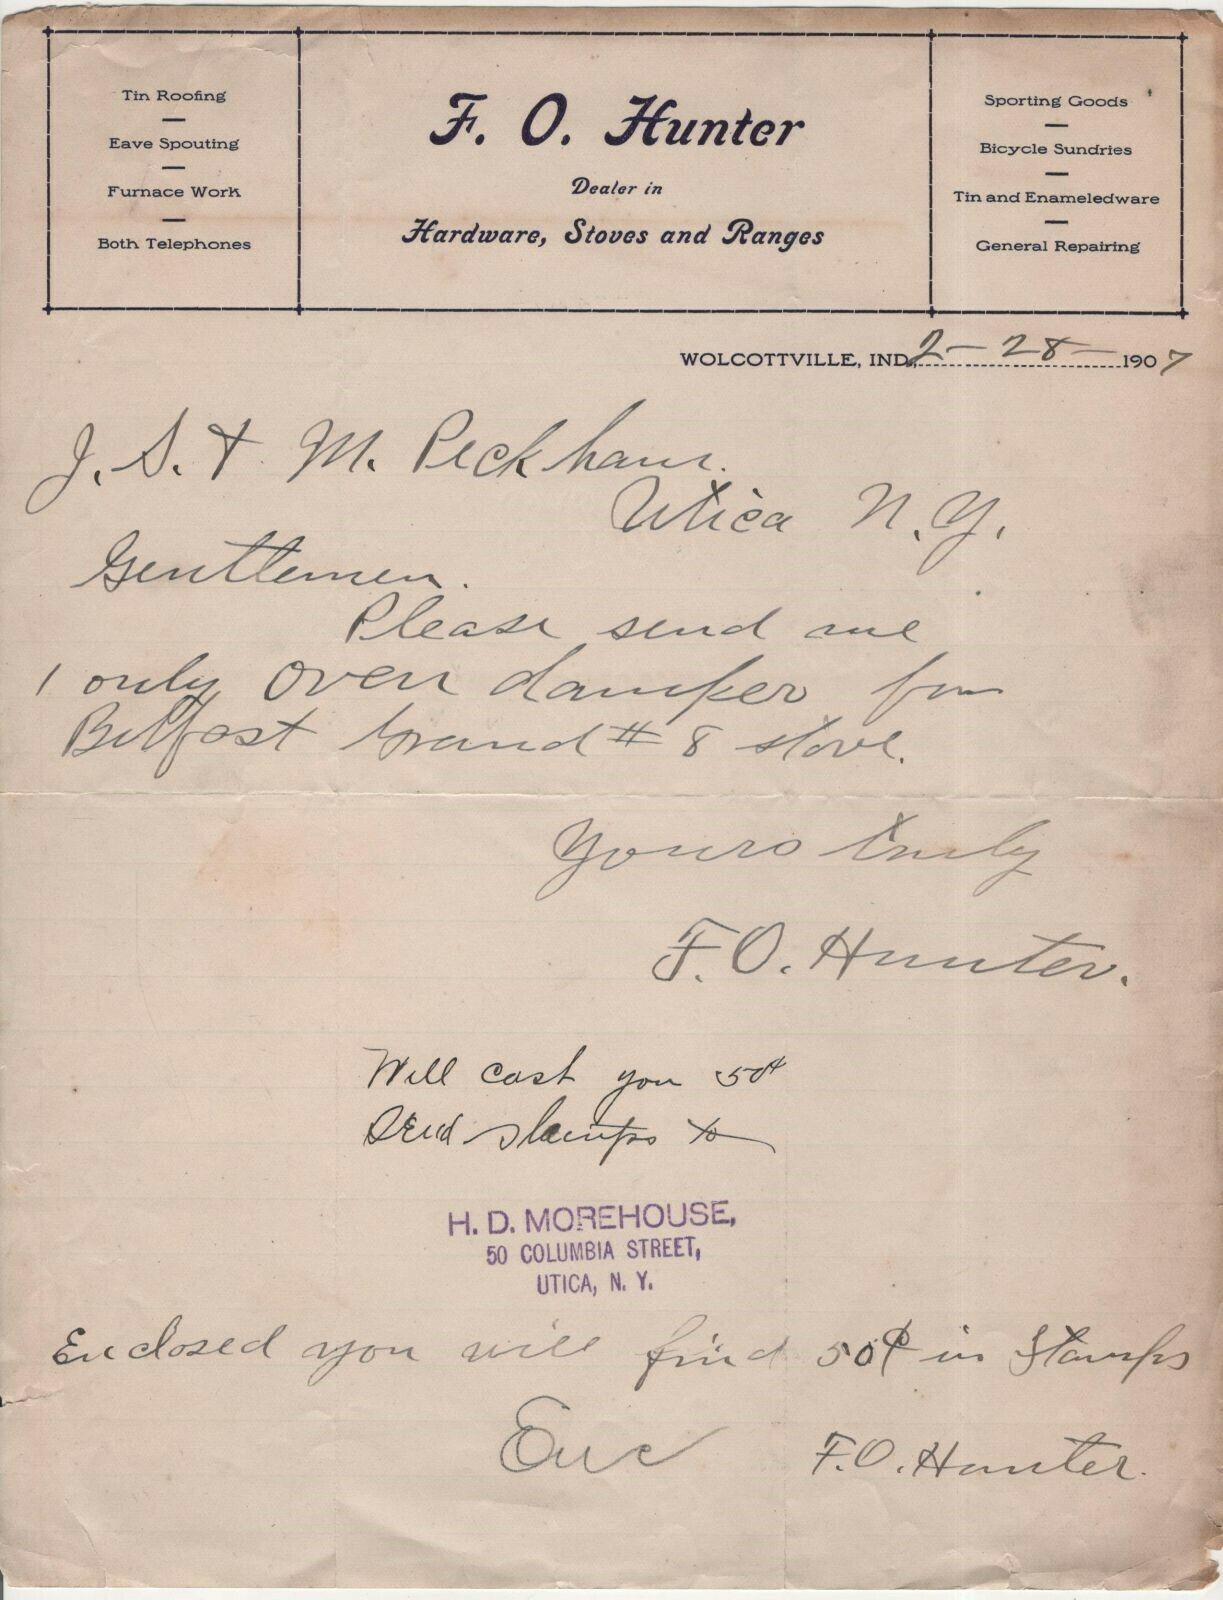 Tin Roofing
Eave Spouting
Furnace Work
Both Telephones
F. O. Hunter
Dealer in
Hardware, Stoves and Ranges
Sporting Goods
Bicycle Sundries
Tin and Enameledware
General Repairing
WOLCOTTVILLE, IND., 2-28-1907
J. S. & M. Peckham.
Utica N.Y.
Gentlemen.
Please send me
1 only oven damper for
Belfast Grand # 8 stove.
Yours truly
F.O. Hunter.
Will cost you 50¢
Send stamps to
H. D. MOREHOUSE,
50 COLUMBIA STREET,
UTICA, N. Y.
Enclosed you will find 50¢ in Stamps
Enc F.O. Hunter.